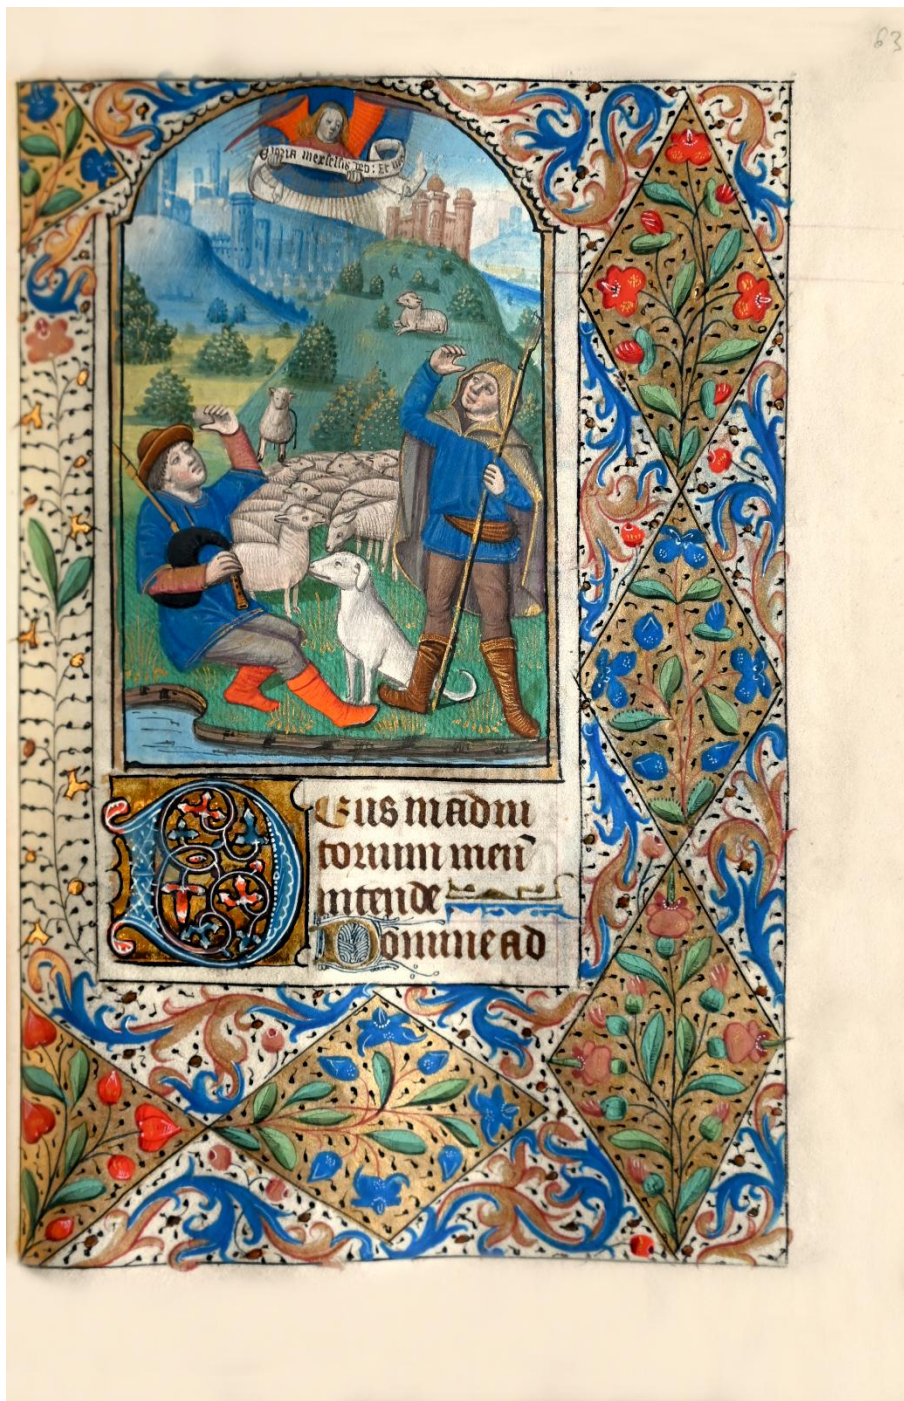 63
Gloria in excelsis deo : Et in
Deus in adiu
torium meū
intende
Domine ad